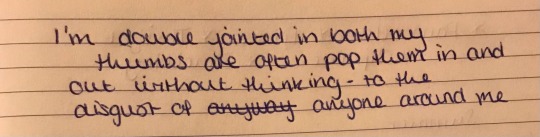 I'm double jointed in both my
thumbs are often pop them in and
out without thinking - to the
disgust of anyway anyone around me